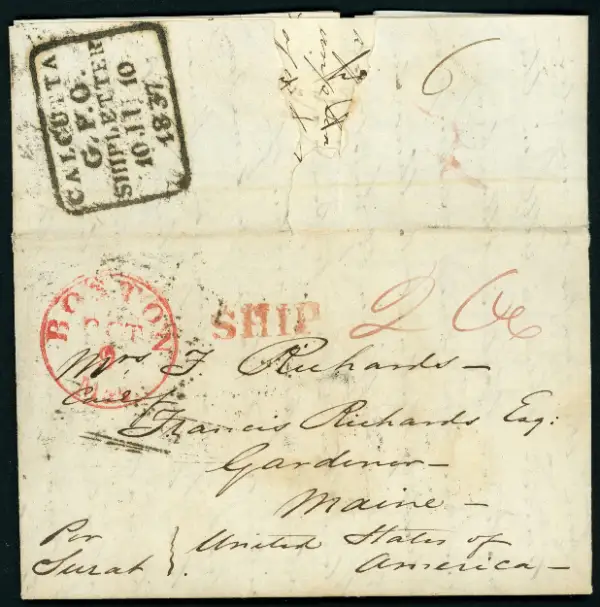 CALCUTTA
G. P. O.
SHIP LETTER
10 JU 10
1837
6
BOSTON
OCT
9
Mas.
SHIP
Mrs F. Richards —
Care of
Francis Richards Esq:
Gardiner —
Maine —
Per
Surat } United States of
America —